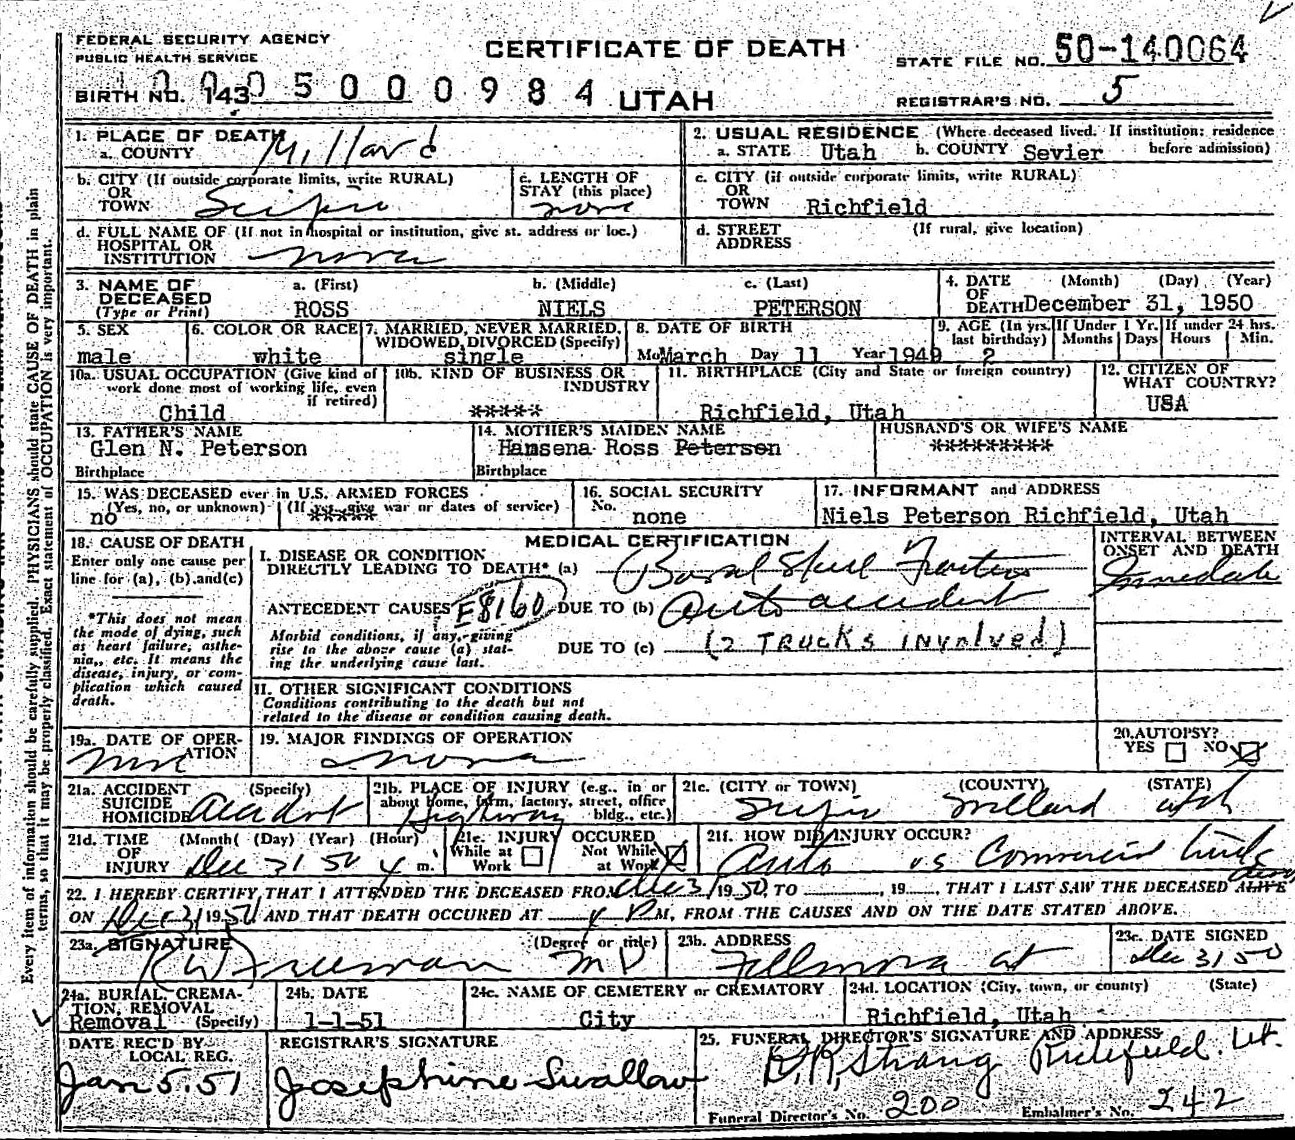 FEDERAL SECURITY AGENCY
PUBLIC HEALTH SERVICE
CERTIFICATE OF DEATH
STATE FILE NO. 50-140064
1 0 0 0 5 0 0 0 9 8 4
BIRTH NO. 143 UTAH
REGISTRAR'S NO. 5
1. PLACE OF DEATH
a. COUNTY Millard
2. USUAL RESIDENCE (Where deceased lived. If institution: residence before admission)
a. STATE Utah b. COUNTY Sevier
b. CITY (If outside corporate limits, write RURAL)
OR
TOWN Scipio
c. LENGTH OF
STAY (this place)
none
c. CITY (if outside corporate limits, write RURAL)
OR
TOWN Richfield
d. FULL NAME OF (If not in hospital or institution, give st. address or loc.)
HOSPITAL OR
INSTITUTION none
d. STREET (If rural, give location)
ADDRESS
3. NAME OF a. (First) b. (Middle) c. (Last)
DECEASED
(Type or Print) ROSS NIELS PETERSON
4. DATE (Month) (Day) (Year)
OF
DEATH December 31, 1950
5. SEX
male
6. COLOR OR RACE
white
7. MARRIED, NEVER MARRIED,
WIDOWED, DIVORCED (Specify)
single
8. DATE OF BIRTH
Mo March Day 11 Year 1949
9. AGE (In yrs. last birthday)
2
If Under 1 Yr.
Months Days
If under 24 hrs.
Hours Min.
10a. USUAL OCCUPATION (Give kind of
work done most of working life, even
if retired)
Child
10b. KIND OF BUSINESS OR
INDUSTRY
*****
11. BIRTHPLACE (City and State or foreign country)
Richfield, Utah
12. CITIZEN OF
WHAT COUNTRY?
USA
13. FATHER'S NAME
Glen N. Peterson
Birthplace
14. MOTHER'S MAIDEN NAME
Hansena Ross Peterson
Birthplace
HUSBAND'S OR WIFE'S NAME
*********
15. WAS DECEASED ever in U.S. ARMED FORCES
(Yes, no, or unknown) (If yes, give war or dates of service)
no *****
16. SOCIAL SECURITY
No. none
17. INFORMANT and ADDRESS
Niels Peterson Richfield, Utah
18. CAUSE OF DEATH
Enter only one cause per
line for (a), (b) and (c)
*This does not mean
the mode of dying, such
as heart failure, asthe-
nia, etc. It means the
disease, injury, or com-
plication which caused
death.
MEDICAL CERTIFICATION
INTERVAL BETWEEN
ONSET AND DEATH
I. DISEASE OR CONDITION
DIRECTLY LEADING TO DEATH* (a) Basal Skull Fracture
Immediate
ANTECEDENT CAUSES E8160 DUE TO (b) Auto accident
Morbid conditions, if any, giving
rise to the above cause (a) stat-
ing the underlying cause last.
DUE TO (c) (2 TRUCKS INVOLVED)
II. OTHER SIGNIFICANT CONDITIONS
Conditions contributing to the death but not
related to the disease or condition causing death.
19a. DATE OF OPER-
ATION
none
19. MAJOR FINDINGS OF OPERATION
none
20. AUTOPSY?
YES NO
21a. ACCIDENT (Specify)
SUICIDE
HOMICIDE accident
21b. PLACE OF INJURY (e.g., in or
about home, farm, factory, street, office
bldg., etc.)
Highway
21c. (CITY or TOWN) (COUNTY) (STATE)
Scipio Millard Utah
21d. TIME (Month) (Day) (Year) (Hour)
OF
INJURY Dec 31 50 4 m.
21e. INJURY OCCURED
While at Work Not While at Work
21f. HOW DID INJURY OCCUR?
Auto vs Commercial truck
22. I HEREBY CERTIFY THAT I ATTENDED THE DECEASED FROM Dec 31 1950, TO , 19 , THAT I LAST SAW THE DECEASED ALIVE
ON Dec 31 1950 AND THAT DEATH OCCURED AT 4 P M, FROM THE CAUSES AND ON THE DATE STATED ABOVE.
23a. SIGNATURE (Degree or title)
R W Freeman MD
23b. ADDRESS
Fillmore ut
23c. DATE SIGNED
Dec 31 50
24a. BURIAL, CREMA-
TION, REMOVAL
Removal (Specify)
24b. DATE
1-1-51
24c. NAME OF CEMETERY or CREMATORY
City
24d. LOCATION (City, town, or county) (State)
Richfield, Utah
DATE REC'D BY
LOCAL REG.
Jan 5. 51
REGISTRAR'S SIGNATURE
Josephine Swallow
25. FUNERAL DIRECTOR'S SIGNATURE AND ADDRESS
Strang Richfield. Ut.
Funeral Director's No. 200 Embalmer's No. 242
Every item of information should be carefully supplied. PHYSICIANS should state CAUSE OF DEATH in plain
terms, so that it may be properly classified. Exact statement of OCCUPATION is very important.